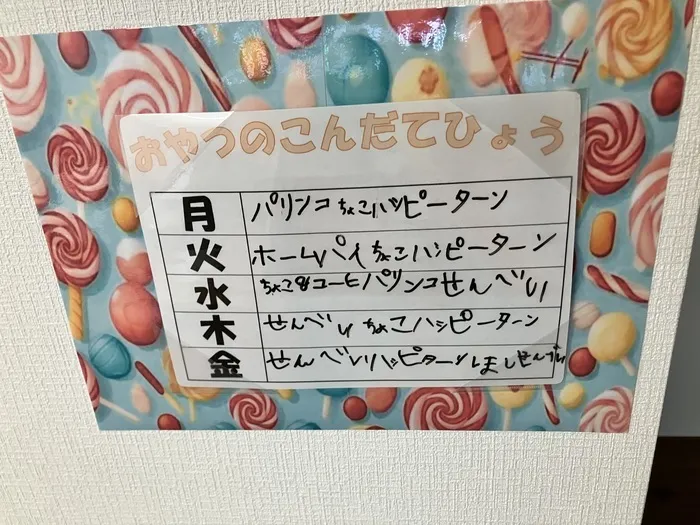 おやつのこんだてひょう
月 パリンコ ちょこハッピーターン
火 ホームパイ ちょこハッピーターン
水 ちょこ コーヒ パリンコ せんべい
木 せんべい ちょこハッピーターン
金 せんべい ハッピターン しましせんべい